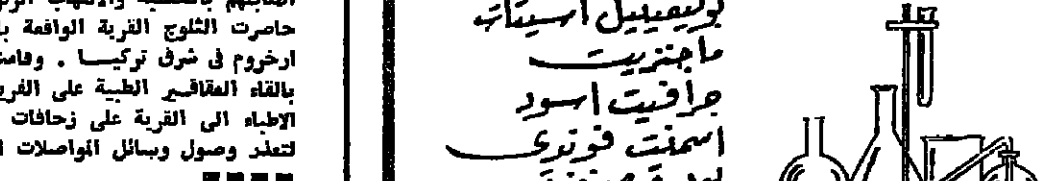 حاصرت الثلوج القرية الواقعة
ارخروم فى شرق تركيـــا . وقامت
بالقاء العقاقـير الطبية على
الاطباء الى القرية على زحافات
لتعذر وصول وسائل المواصلات
بوليڤينيل أسيتات
ماجنزيت
جرافيت أسود
أسمنت فوندى